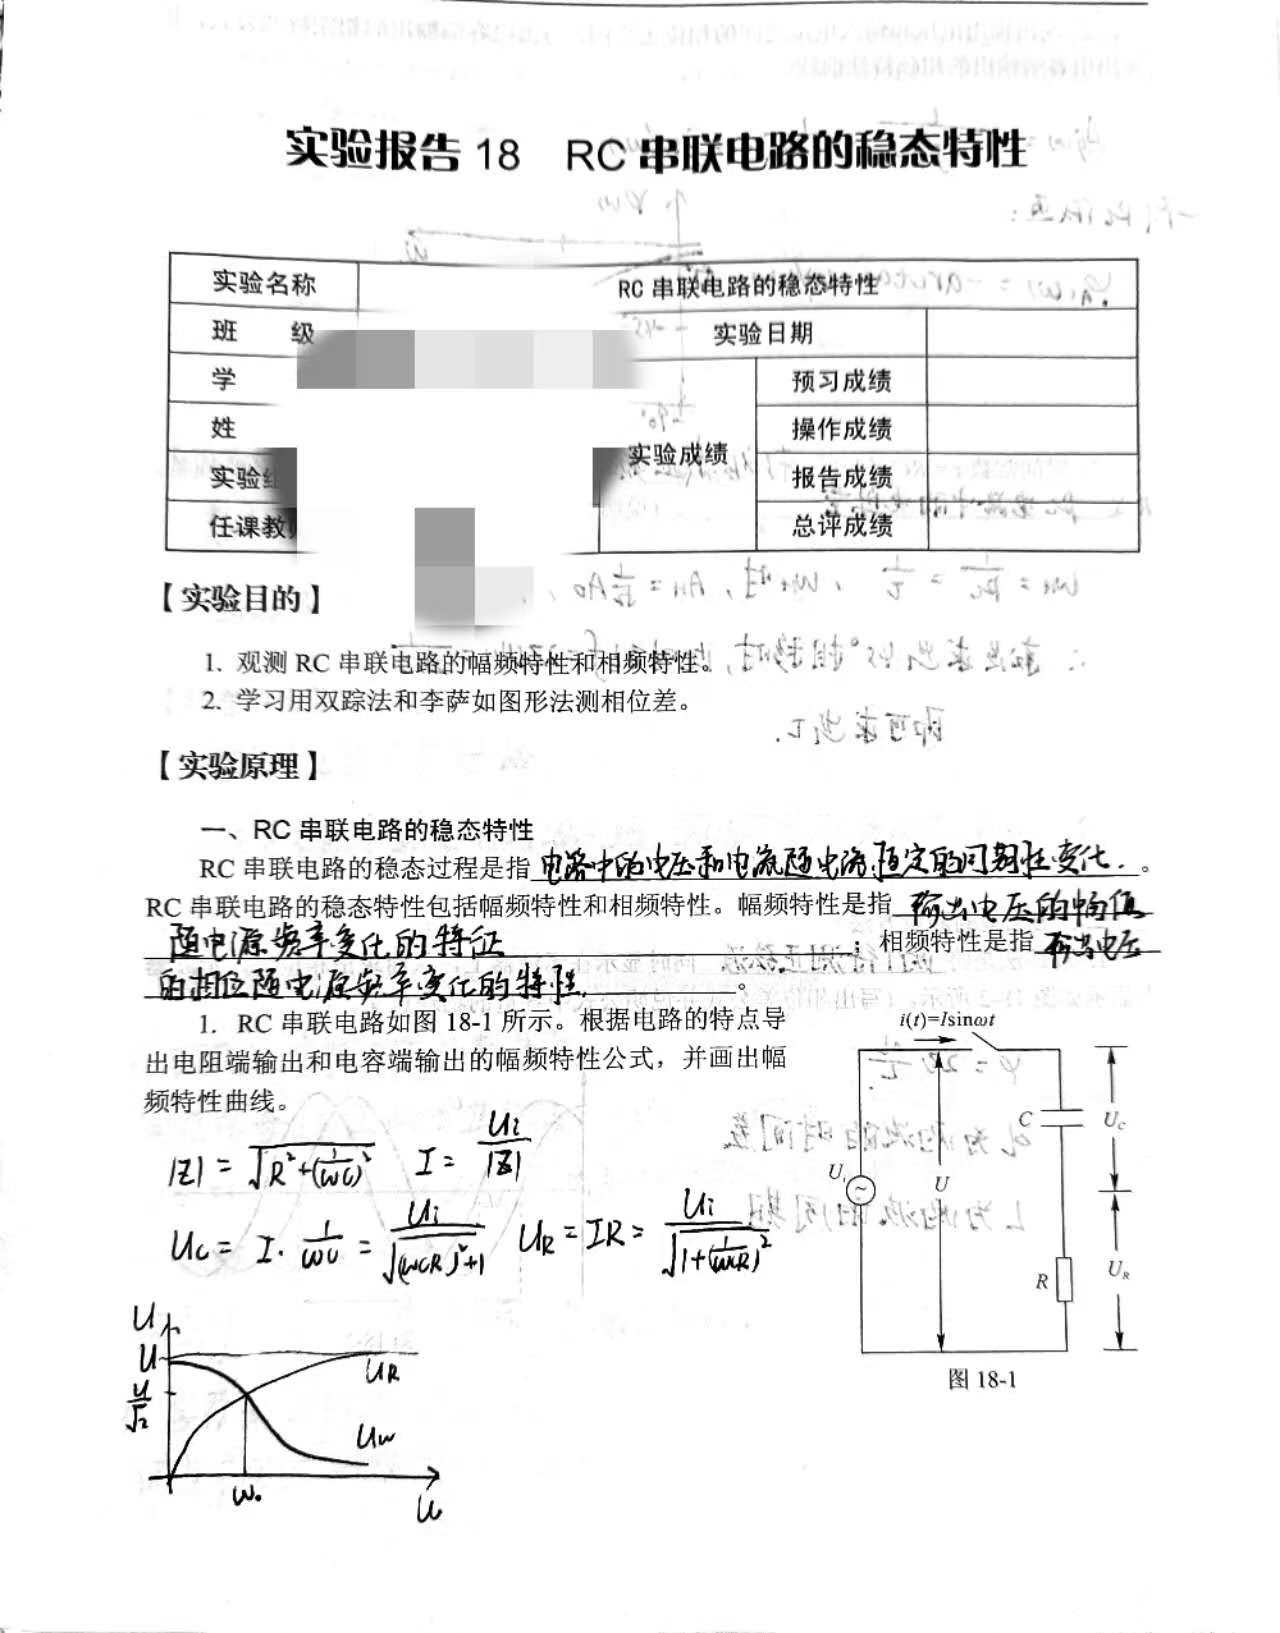 实验报告 18 RC 串联电路的稳态特性
实验名称 RC 串联电路的稳态特性
班 级 实验日期
学 预习成绩
姓 操作成绩
实验成绩
实验组 报告成绩
任课教师 总评成绩
【实验目的】
1. 观测 RC 串联电路的幅频特性和相频特性。
2. 学习用双踪法和李萨如图形法测相位差。
【实验原理】
一、RC 串联电路的稳态特性
RC 串联电路的稳态过程是指 电路中的电压和电流随电流恒定的周期性变化. 。
RC 串联电路的稳态特性包括幅频特性和相频特性。幅频特性是指 输出电压的幅值
随电源频率变化的特征 ；相频特性是指 输出电压
的相位随电源频率变化的特性. 。
1. RC 串联电路如图 18-1 所示。根据电路的特点导
出电阻端输出和电容端输出的幅频特性公式，并画出幅
频特性曲线。
|Z| = √(R²+(1/ωC)²) I = Ui/|Z|
Uc = I · 1/ωC = Ui/√((ωCR)²+1) UR = IR = Ui/√(1+(1/ωCR)²)
i(t)=Isinωt
C
Uc
Ui
~
U
R
UR
图 18-1
U
U
U/√2
UR
ω₀